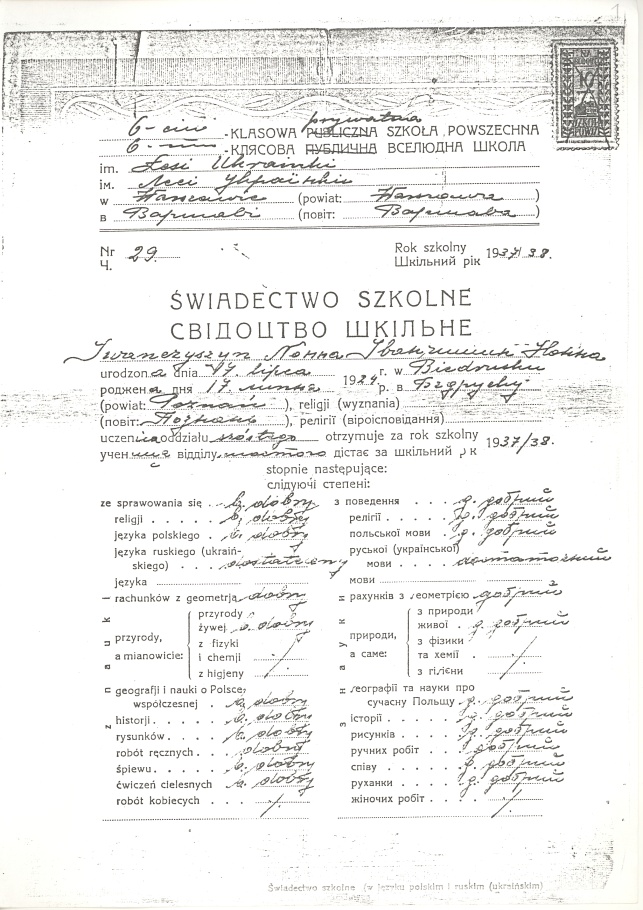 1
prywatna
6-cio - KLASOWA PUBLICZNA SZKOŁA POWSZECHNA
6- - КЛЯСОВА ПУБЛИЧНА ВСЕЛЮДНА ШКОЛА
im. Łesi Ukrainki
ім. Лесі Українки
w Warszawie (powiat: Warszawa)
в Варшаві (повіт: Варшава)
Nr 29. Rok szkolny 1937/38.
Ч. Шкільний рік
ŚWIADECTWO SZKOLNE
СВІДОЦТВО ШКІЛЬНЕ
Iwanczyszyn Nonna Нонна
urodzona dnia 17 lipca 1924 r. w Biedrusku
роджена дня 17. липня р. в
(powiat: Poznań), religji (wyznania)
(повіт: Познань), релігії (віроісповідання)
uczenica oddziału szóstego otrzymuje za rok szkolny 1937/38.
учениця відділу шостого дістає за шкільний рік
stopnie następujące:
слідуючі степені:
ze sprawowania się b. dobry з поведення д. добрий
religji b. dobry релігії д. добрий
języka polskiego b. dobry польської мови д. добрий
języka ruskiego (ukraiń- руської (української)
skiego) dostateczny мови достаточний
języka мови
rachunków z geometrją dobry рахунків з геометрією добрий
przyrody з природи
żywej b. dobry живої д. добрий
przyrody, z fizyki природи, з фізики
a mianowicie: i chemji а саме: та хемії
z higjeny з гігієни
geografji i nauki o Polsce географії та науки про
współczesnej b. dobry сучасну Польщу д. добрий
historji b. dobry історії д. добрий
rysunków b. dobry рисунків д. добрий
robót ręcznych dobry ручних робіт добрий
śpiewu b. dobry співу д. добрий
ćwiczeń cielesnych b. dobry руханки д. добрий
robót kobiecych жіночих робіт
Świadectwo szkolne (w języku polskim i ruskim (ukraińskim)